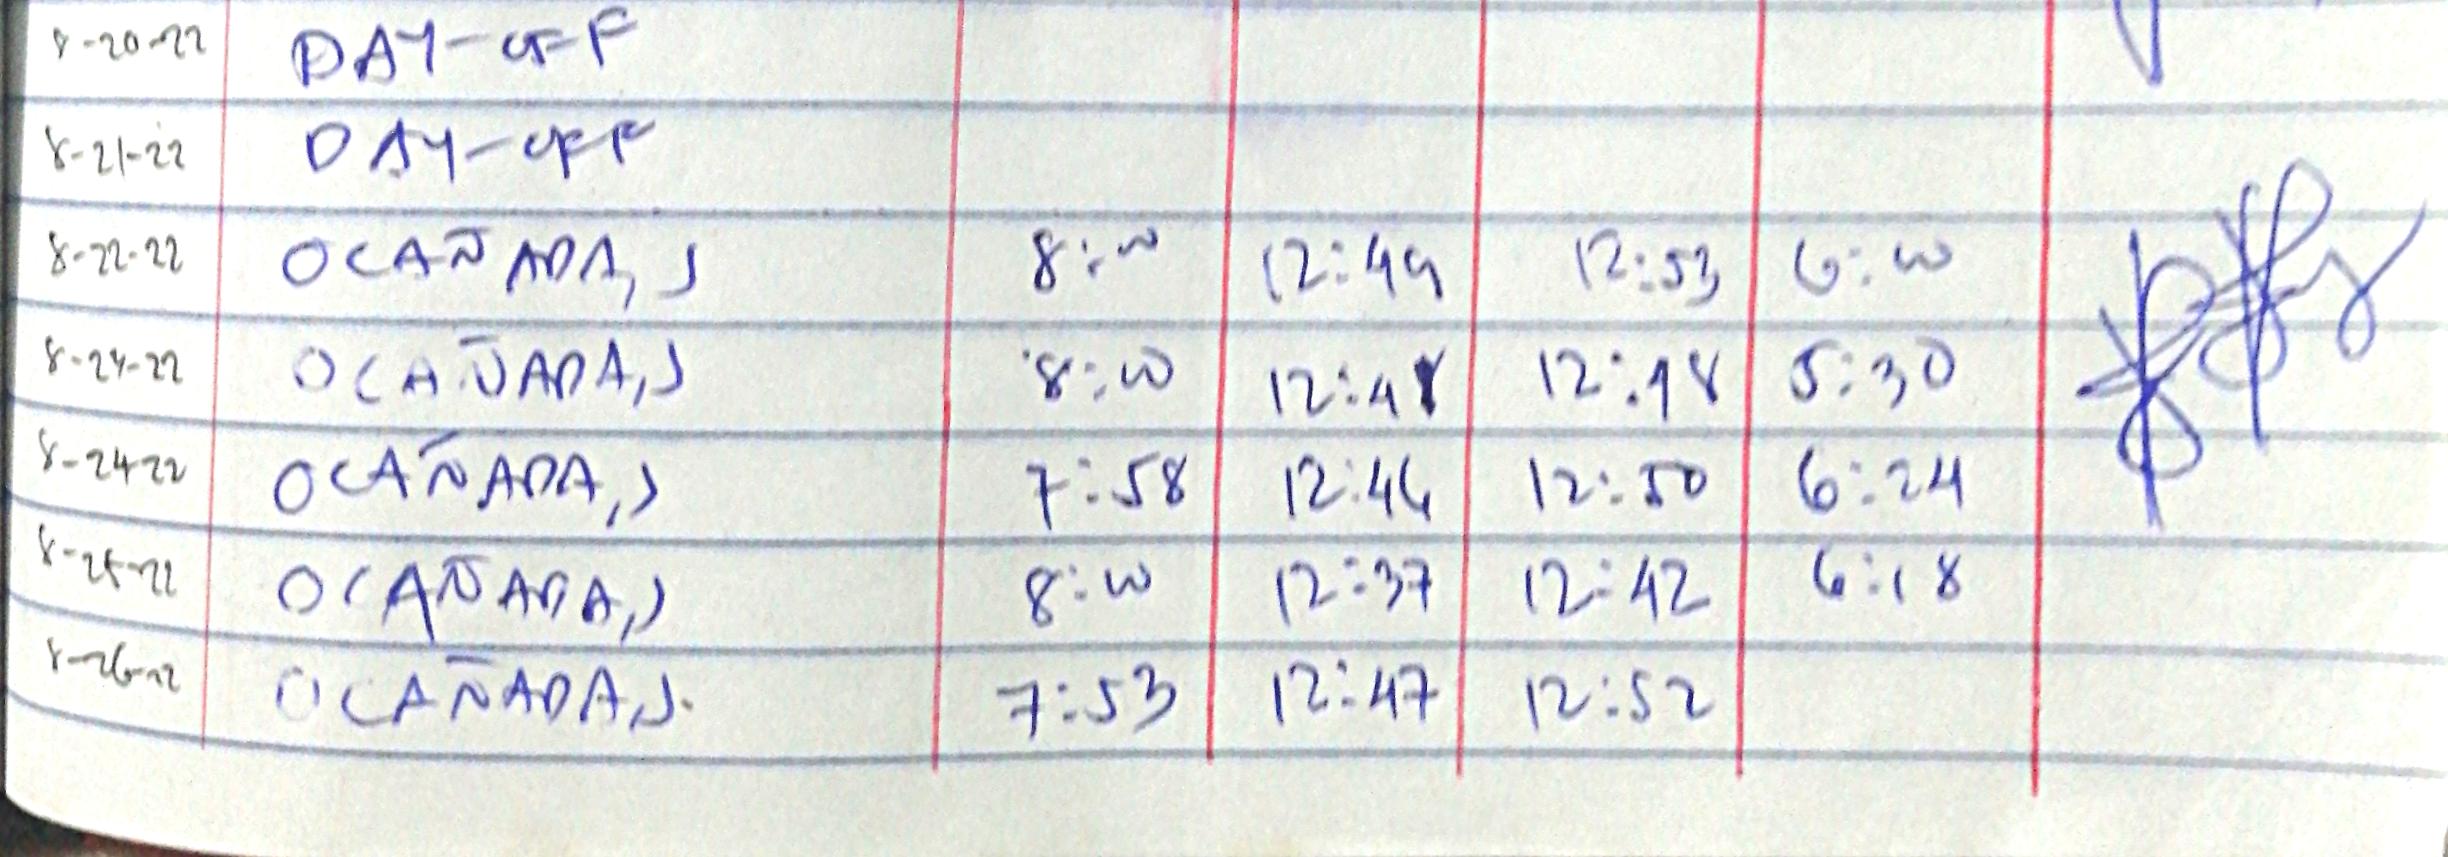 8-20-22 DAY-OFF
8-21-22 DAY-OFF
8-22-22 OCAÑADA, J 8:00 12:49 12:53 6:00
8-24-22 OCAÑADA, J 8:00 12:48 12:48 5:30
8-24-22 OCAÑADA, J 7:58 12:46 12:50 6:24
8-25-22 OCAÑADA, J 8:00 12:37 12:42 6:18
8-26-22 OCAÑADA, J. 7:53 12:47 12:52